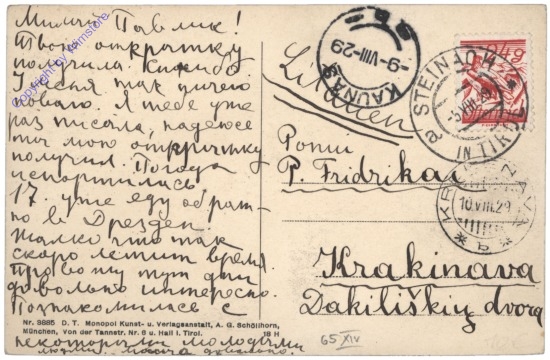 Милый Павлик!
Твою открытку
получила. Спасибо
У меня так ничего
нового. Я тебе уже
раз писала, надеюсь
ты мою открытку
получил. Погода
испортилась
17. уже еду обрат-
но в Дрезден
Жалко что так
скоро летит время.
Провожу тут дни
довольно интересно.
Познакомилась с
некоторыми молодыми
людьми.
copyright by ankrimstore
Nr. 3885 D. T. Monopol Kunst- u. Verlagsanstalt, A. G. Schöllhorn,
München, Von der Tannstr. Nr. 6 u. Hall i. Tirol. 18 H
KAUNAS
-9-VIII-29
STEINACH
IN TIROL
Litauen
Ponui
P. Fridrikai
10.VIII.29
Krakinava
Dakiliškių dvorą
65 XIV